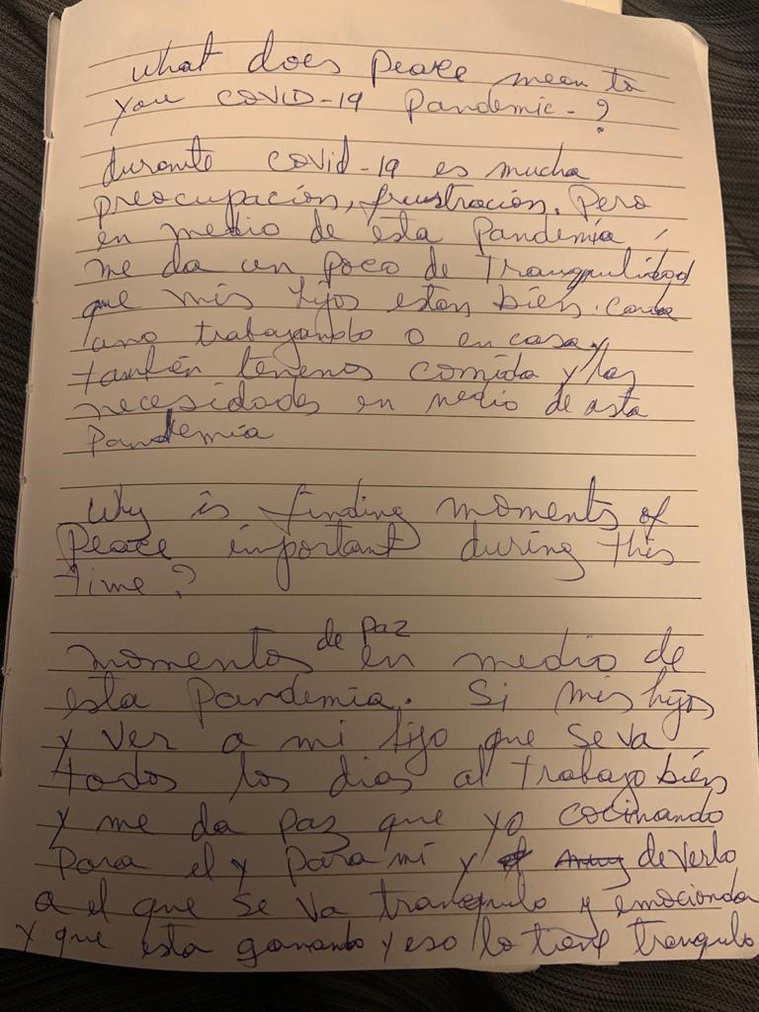 What does peace mean to
you COVID-19 Pandemic-?
durante covid-19 es mucha
preocupación, frustración. Pero
en medio de esta Pandemia,
me da un poco de Tranquilidad
que mis hijos estan bién. Cada
uno trabajando o en casa y
también tenemos comida y las
necesidades en medio de esta
Pandemia
Why is finding moments of
Peace important during this
time?
momentos de paz en medio de
esta Pandemia. Si mis hijos
y ver a mi hijo que se va
todos los dias al trabajo bién
y me da paz que yo cocinando
para el y para mi y de verlo
a el que se va tranquilo y emocionda
y que esta ganando y eso lo tiene tranquilo